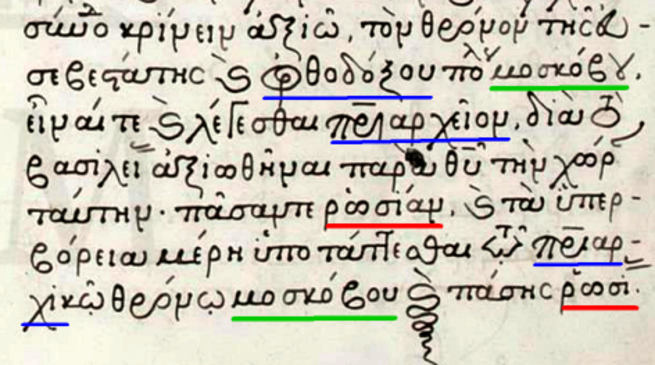 κρίνειν ἀξιῶ, τὸν θρόνον τῆς εὐ-
σεβεστάτης ϗ ὀρθοδόξου πόλ μοσκόβȣ,
εἶναί τε ϗ λέγεσθαι πρ̅ιαρχεῖον, διὰ
βασιλεί ἀξιωθῆναι παρὰ θῦ τὴν χώρ
ταύτην· πᾶσάν τε ῥωσίαν, ϗ τὰ ὑπερ-
βόρεια μέρη ὑποτάττεσθαι τῷ πρ̅ιαρ-
χικῷ θρόνῳ μοσκόβου ϗ πάσης ῥωσί.